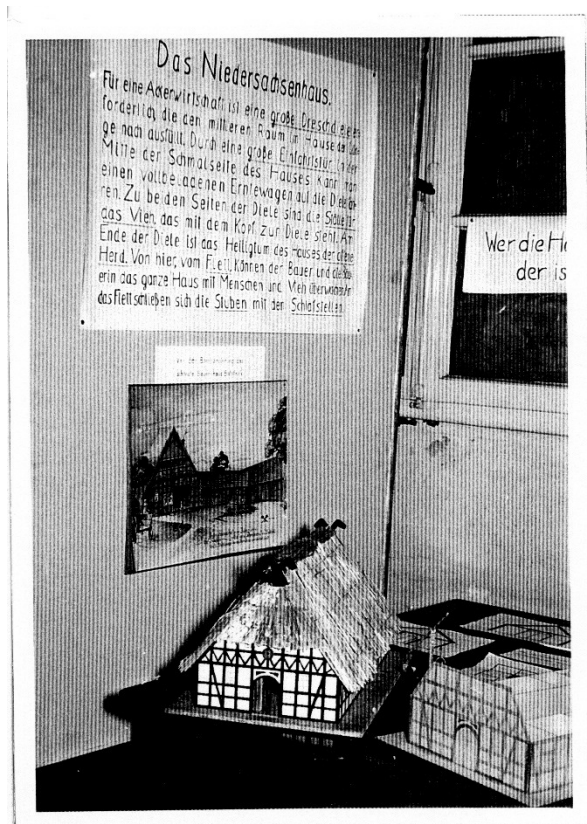 Das Niedersachsenhaus.
Für eine Ackerwirtschaft ist eine große Dreschdiele er-
forderlich, die den mittleren Raum im Hause der Län-
ge nach ausfüllt. Durch eine große Einfahrtstür in der
Mitte der Schmalseite des Hauses kann man
einen vollbeladenen Erntewagen auf die Diele fah-
ren. Zu beiden Seiten der Diele sind die Ställe für
das Vieh, das mit dem Kopf zur Diele steht. Am
Ende der Diele ist das Heiligtum des Hauses der offene
Herd. Von hier, vom Flett, können der Bauer und die Bäu-
erin das ganze Haus mit Menschen und Vieh überwachen. An
das Flett schließen sich die Stuben mit den Schlafstellen.
Wer die He
der is